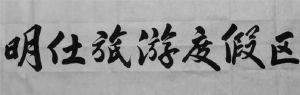 明仕旅游度假区